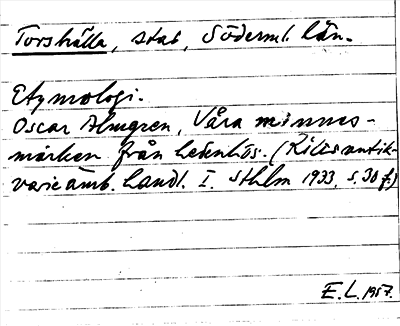 Torshälla, stad, Söderml. län.
Etymologi.
Oscar Almgren, Våra minnes-
märken från hedenhös. (Riksantik-
varieämb. handl. I. Sthlm 1933, s. 30 f.)
E.L. 1957.